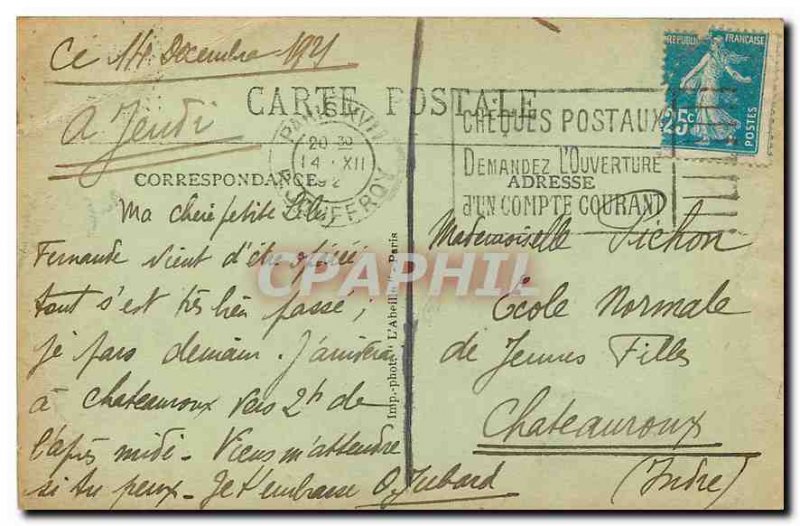 Ce 14 Décembre 1921
A Jeudi
CARTE POSTALE
REPUBLIQUE FRANÇAISE
25c
POSTES
PARIS XVII
20 30
14 XII
R. JOUFFROY
CHÈQUES POSTAUX
DEMANDEZ L'OUVERTURE
d'UN COMPTE COURANT
CORRESPONDANCE
ADRESSE
Ma chère petite
Fernande vient d'être opérée
tout s'est très bien passé ;
je pars demain. J'arriverai
à Chateauroux vers 2h de
l'après midi. Viens m'attendre
si tu peux. Je t'embrasse
Imp.-phot. L'Abeille - Paris
Mademoiselle Pichon
Ecole Normale
de Jeunes Filles
Chateauroux
(Indre)
CPAPHIL